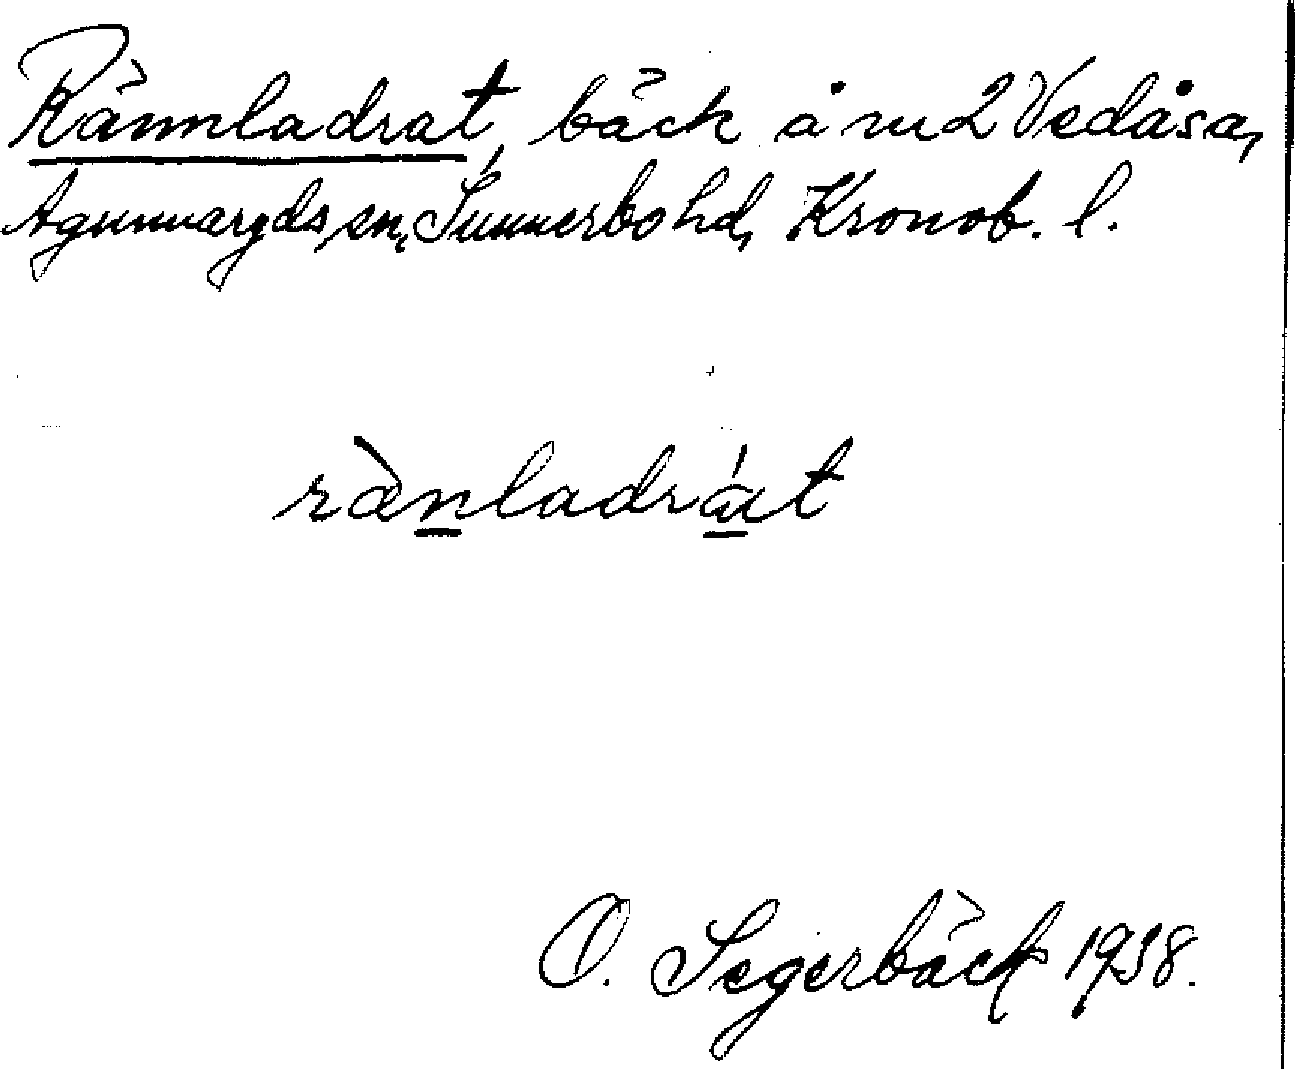 Rännladrat, bäck å nr 2 Vedåsa,
Agunnaryds sn, Sunnerbo hd, Kronob. l.
rænladrát
O. Segerbäck 1938.